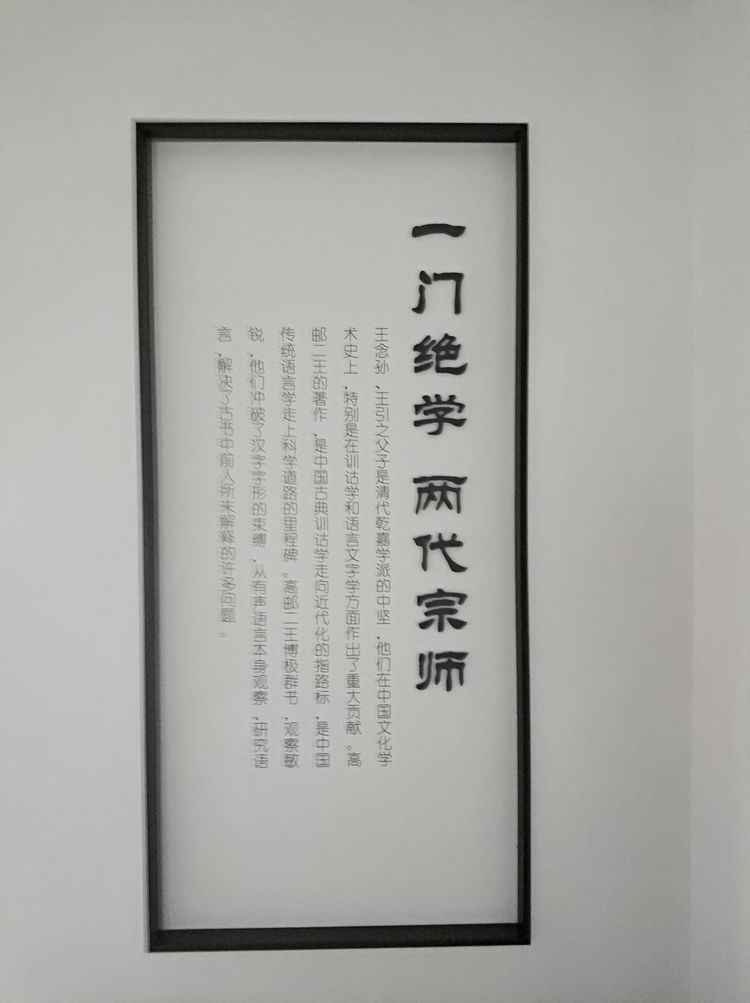 一门绝学 两代宗师
王念孙、王引之父子是清代乾嘉学派的中坚，他们在中国文化学
术史上，特别是在训诂学和语言文字学方面作出了重大贡献。高
邮二王的著作，是中国古典训诂学走向近代化的指路标，是中国
传统语言学走上科学道路的里程碑。高邮二王博极群书，观察敏
锐，他们冲破了汉字字形的束缚，从有声语言本身观察、研究语
言，解决了古书中前人所未解释的许多问题。